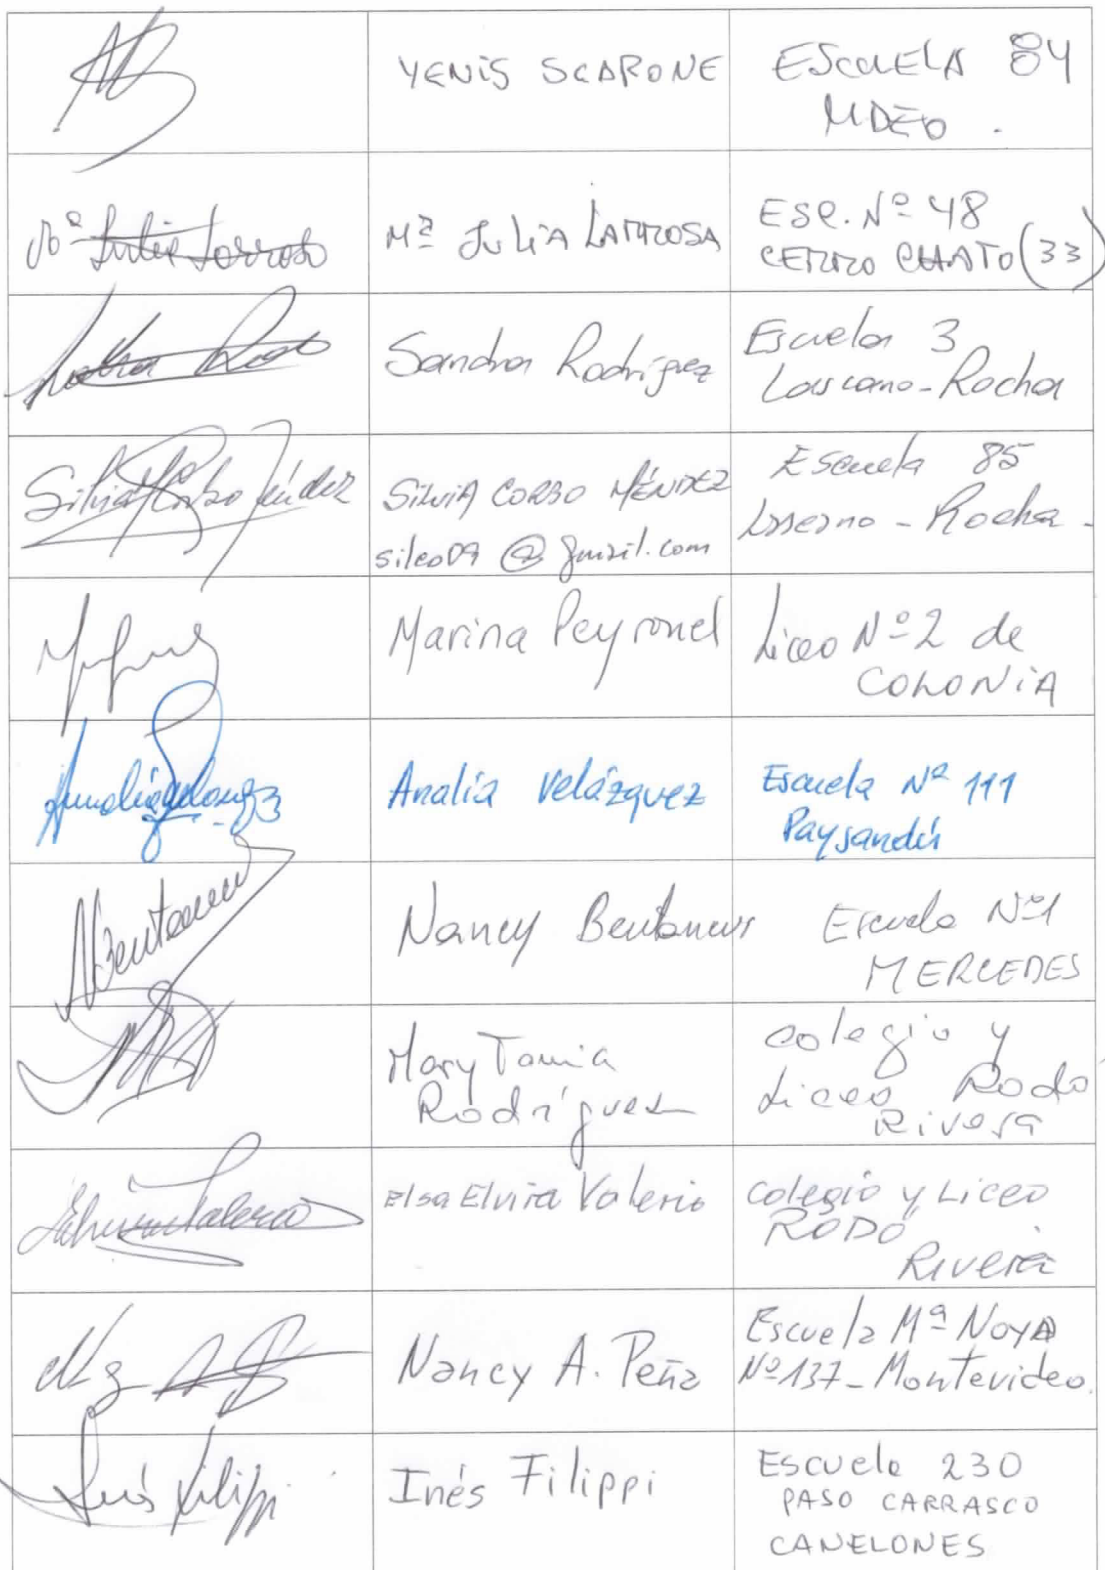 YENIS SCARONE
ESCUELA 84
MDEO.
Mª Julia Larrosa
Mª JULIA LARROSA
ESC. Nº 48
CERRO CHATO (33)
Sandra Rodríguez
Escuela 3
Lascano - Rocha
Silvia Corbo Méndez
SILVIA CORBO MÉNDEZ
silco09@gmail.com
Escuela 85
Lascano - Rocha.
Marina Peyronel
Liceo Nº 2 de
COLONIA
Analía Velázquez
Escuela Nº 111
Paysandú
Nancy
Escuela Nº1
MERCEDES
Mary Tania
Rodríguez
Colegio y
Liceo Rodó
Rivera
Elvira Valerio
Elsa Elvira Valerio
Colegio y Liceo
RODÓ
Rivera
Nancy A. Peña
Escuela Mª NOYA
Nº 137 - Montevideo.
Inés Filippi
Inés Filippi
Escuela 230
PASO CARRASCO
CANELONES